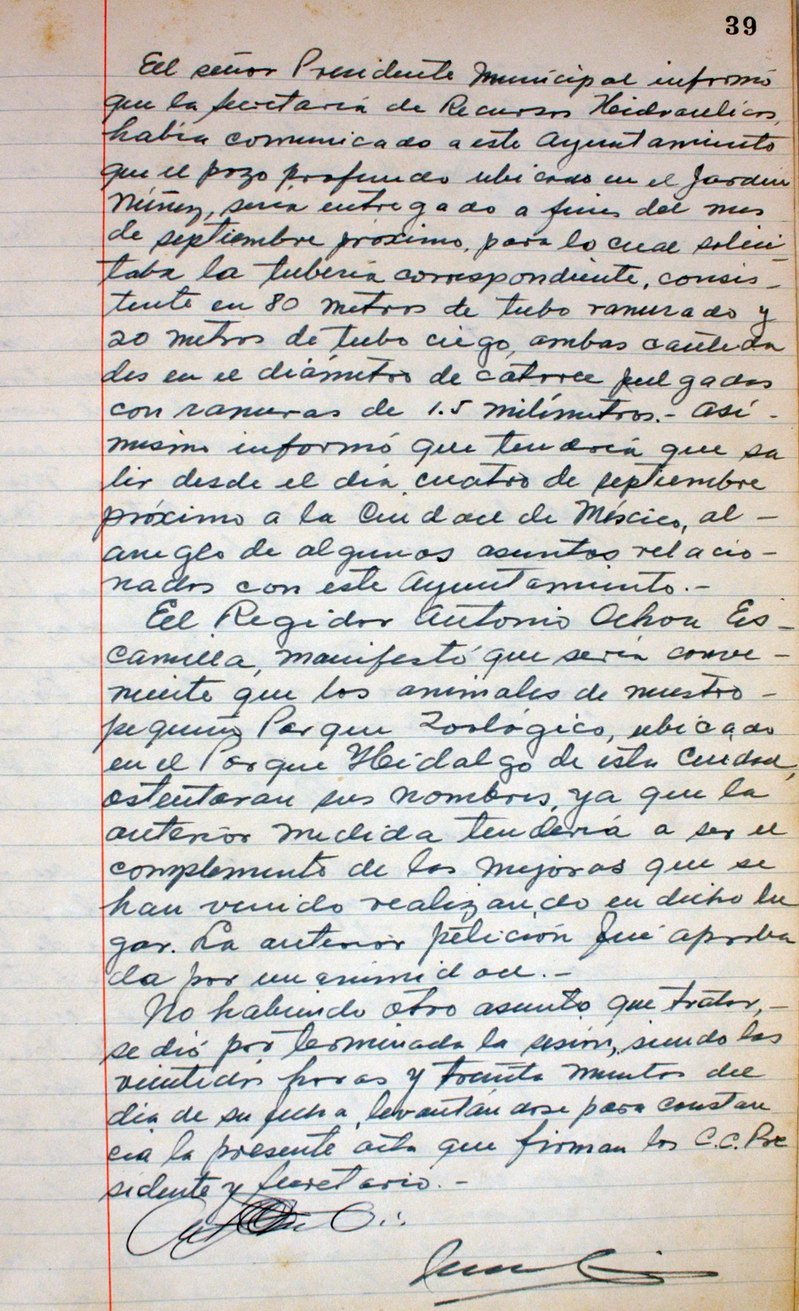 39
El señor Presidente Municipal informó
que la Secretaría de Recursos Hidraulicos,
había comunicado a este Ayuntamiento
que el pozo profundo ubicado en el Jardin
Núñez, sería entregado a fines del mes
de septiembre próximo, para lo cual solici
taba la tubería correspondiente, consis-
tente en 80 metros de tubo ranurado y
20 metros de tubo ciego, ambas cantida
des en el diámetro de catorce pulgadas
con ranuras de 1.5 milímetros.- Asi-
mismo informó que tendría que sa
lir desde el día cuatro de septiembre
próximo a la Ciudad de México, al-
arreglo de algunos asuntos relacio-
nados con este Ayuntamiento.-
El Regidor Antonio Ochoa Es-
camilla, manifestó que sería conve-
niente que los animales de nuestro-
pequeño Parque Zoológico, ubicado
en el Parque Hidalgo de esta Ciudad,
ostentaran sus nombres, ya que la
anterior medida tendería a ser el
complemento de las mejoras que se
han venido realizando en dicho lu
gar. La anterior petición fué aproba
da por unanimidad.-
No habiendo otro asunto que tratar,-
se dió por terminada la sesión, siendo las
veintidós horas y treinta minutos del
día de su fecha, levantándose para constan
cia la presente acta que firman los C.C. Pre
sidente y Secretario.-